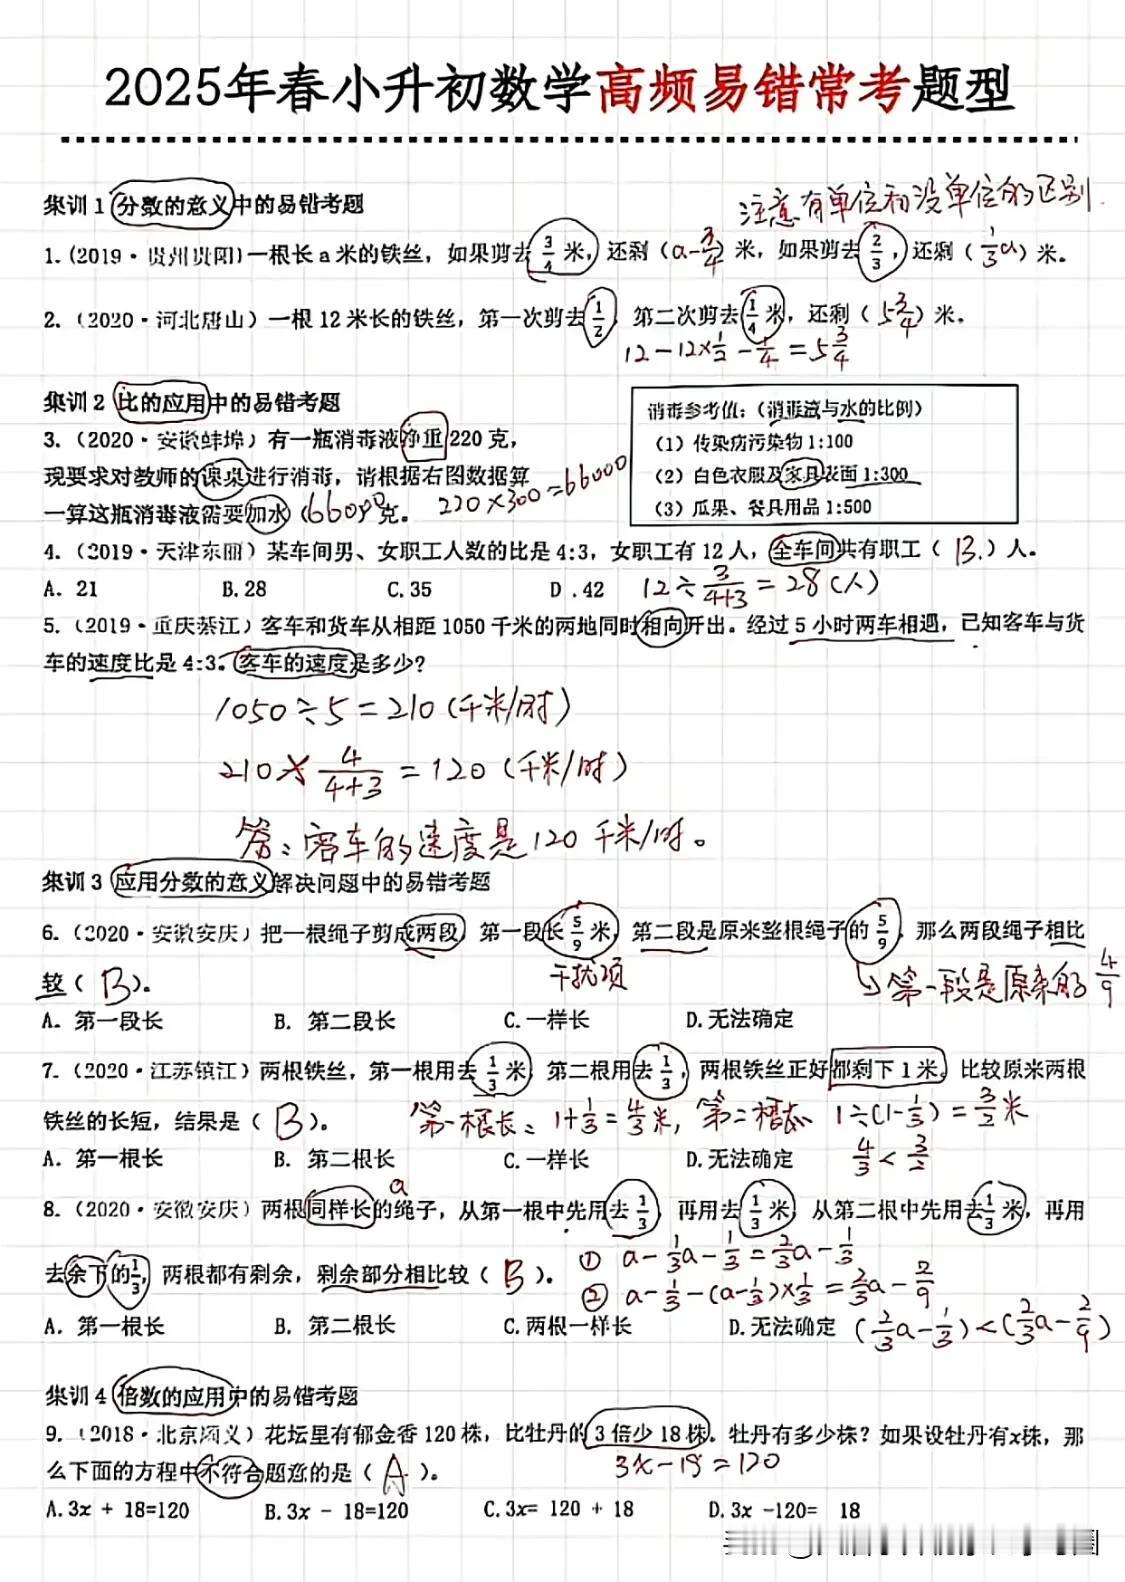 2025年春小升初数学高频易错常考题型
注意有单位和没单位的区别.
集训1 分数的意义中的易错考题
1.(2019·贵州贵阳)一根长a米的铁丝，如果剪去3/4米，还剩（a-3/4）米，如果剪去2/3，还剩（1/3a）米。
2.（2020·河北唐山）一根12米长的铁丝，第一次剪去1/2，第二次剪去1/4米，还剩（5 3/4）米.
12-12×1/2-1/4=5 3/4
集训2 比的应用中的易错考题
3.（2020·安徽蚌埠）有一瓶消毒液净重220克，
现要求对教师的课桌进行消毒，请根据右图数据算
一算这瓶消毒液需要加水（66000）克。
220×300=66000
消毒参考值：（消毒液与水的比例）
（1）传染病污染物1:100
（2）白色衣服及家具表面1:300
（3）瓜果、餐具用品1:500
4.（2019·天津东丽）某车间男、女职工人数的比是4:3，女职工有12人，全车间共有职工（B.）人。
A. 21 B.28 C.35 D .42 12÷3/(4+3)=28(人)
5.（2019·重庆綦江）客车和货车从相距1050千米的两地同时相向开出。经过5小时两车相遇，已知客车与货
车的速度比是4:3。客车的速度是多少?
1050÷5=210(千米/时)
210×4/(4+3)=120(千米/时)
答：客车的速度是120千米/时。
集训3 应用分数的意义解决问题中的易错考题
6.（2020·安徽安庆）把一根绳子剪成两段，第一段长5/9米，第二段是原米整根绳子的5/9，那么两段绳子相比
较（B）。
干扰项
第一段是原来的4/9
A. 第一段长 B. 第二段长 C.一样长 D.无法确定
7.（2020·江苏镇江）两根铁丝，第一根用去1/3米，第二根用去1/3，两根铁丝正好都剩下1米。比较原米两根
铁丝的长短，结果是（B）。 第一根长：1+1/3=4/3米，第二根 1÷(1-1/3)=3/2米
A. 第一根长 B. 第二根长 C.一样长 D.无法确定 4/3<3/2
a
8.（2020·安徽安庆）两根同样长的绳子，从第一根中先用去1/3，再用去1/3米，从第二根中先用去1/3米，再用
① a-1/3a-1/3=2/3a-1/3
去余下的1/3，两根都有剩余，剩余部分相比较（B）。
② a-1/3-(a-1/3)×1/3=2/3a-2/9
A. 第一根长 B. 第二根长 C.两根一样长 D.无法确定 (2/3a-1/3)<(2/3a-2/9)
集训4 倍数的应用中的易错考题
9.（2018·北京顺义）花坛里有郁金香120株，比牡丹的3倍少18株。牡丹有多少株？如果设牡丹有x株，那
么下面的方程中不符合题意的是（A）。
3x-18=120
A.3x + 18=120 B.3x - 18=120 C.3x= 120 + 18 D.3x -120= 18